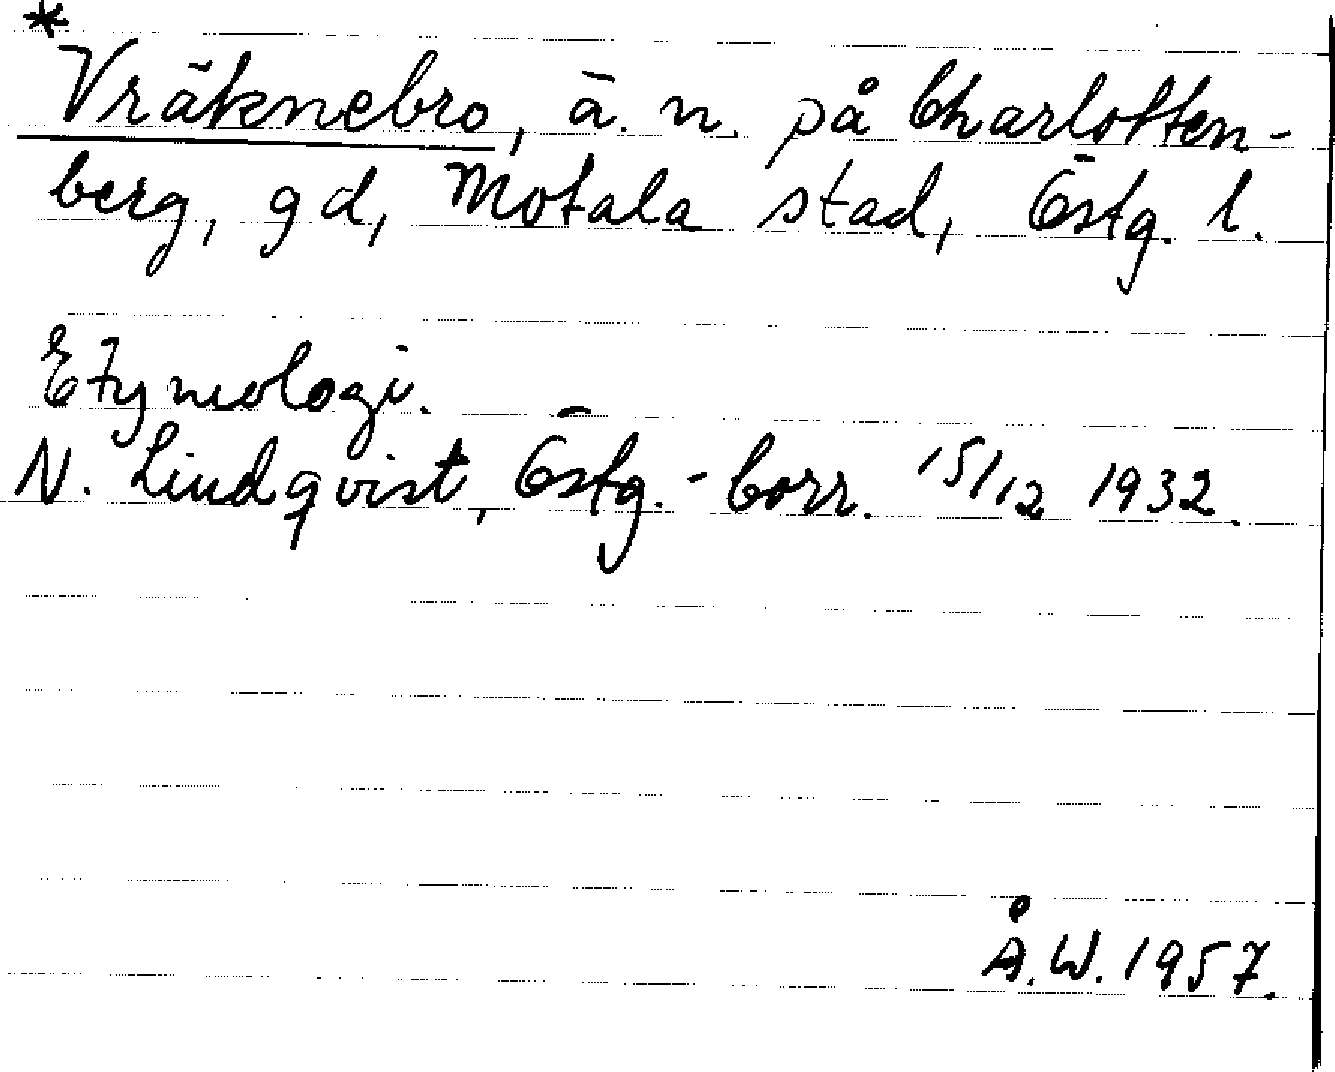 *
Vräknebro, ä. n. på Charlotten-
berg, gd, Motala stad, Östg. l.
Etymologi.
N. Lindqvist, Östg.-Corr. 15/12 1932.
Å.W. 1957.